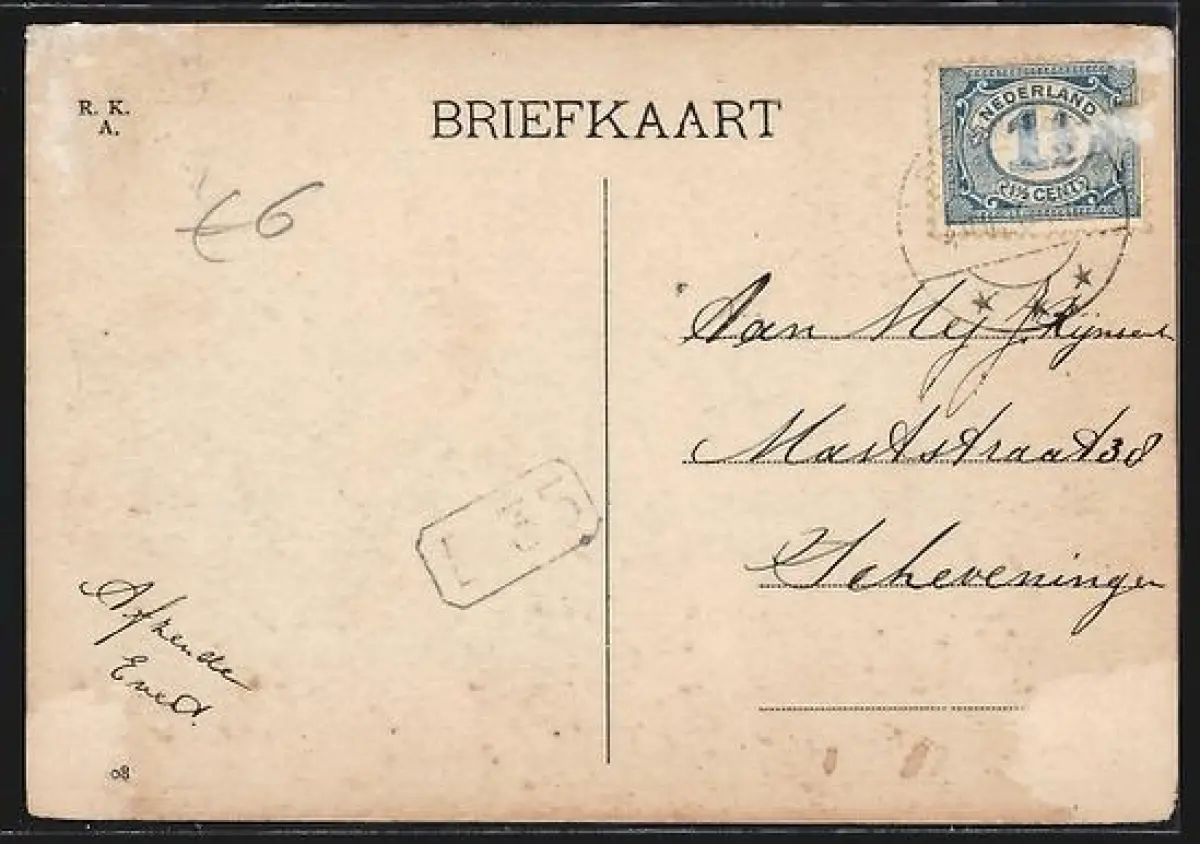 R. K.
A.
BRIEFKAART
NEDERLAND
1½
1½ CENT
€6
Aan Mej J. Rijnsent
Mastraat 38
Scheveningen
Afzende
08